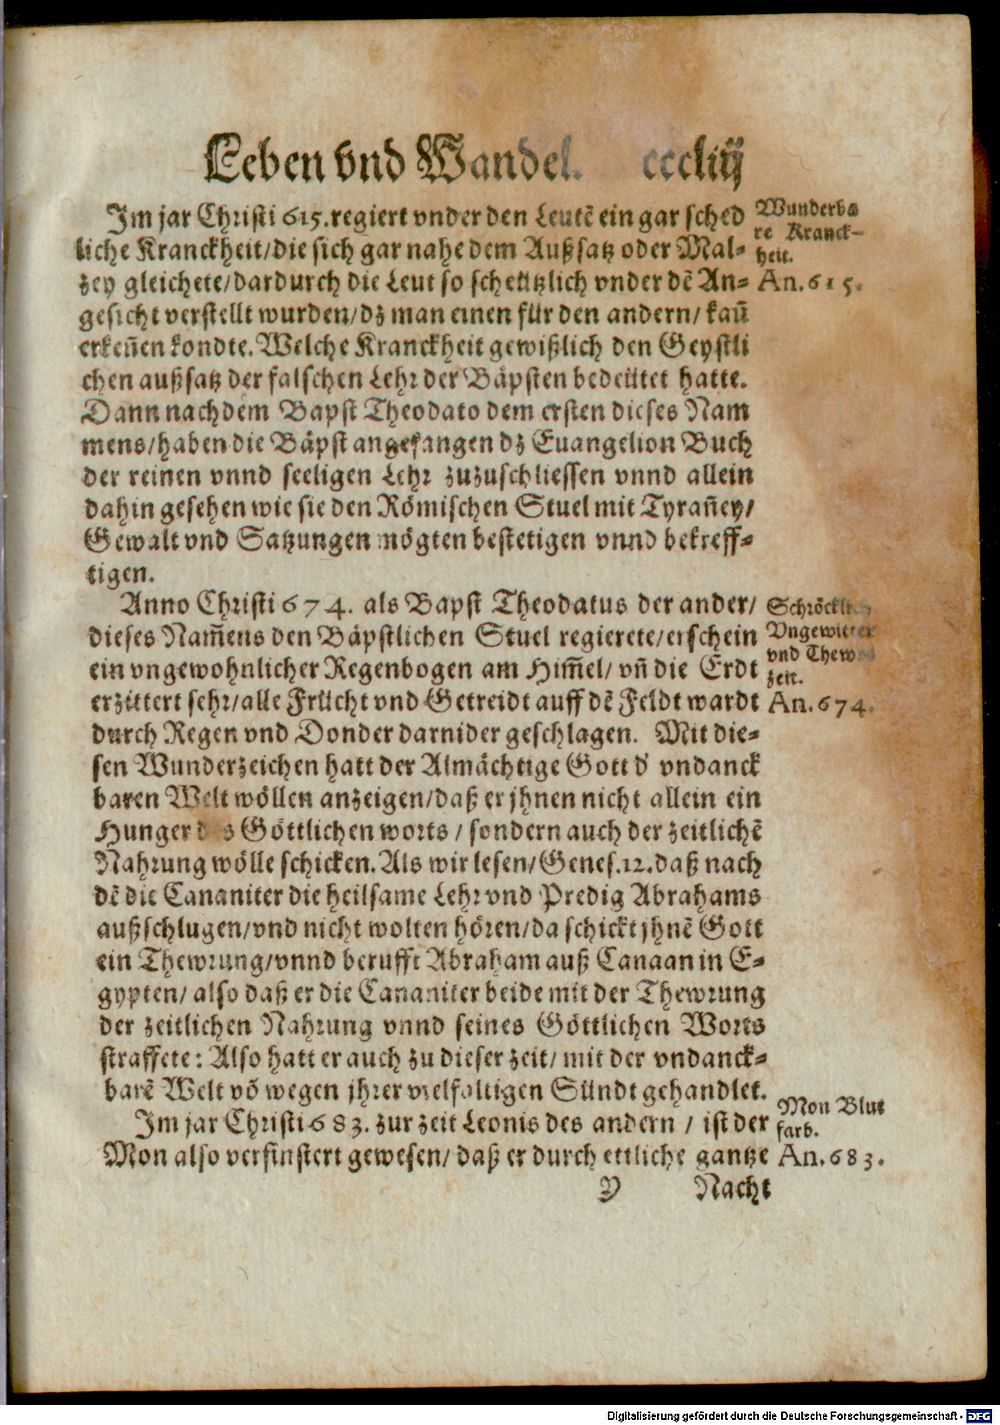 Leben vnd Wandel. cccliij
Im jar Christi 615. regiert vnder den Leutẽ ein gar sched
liche Kranckheit/die sich gar nahe dem Außsatz oder Mal-
zey gleichete/dardurch die Leut so scheützlich vnder dẽ An-
gesicht verstellt wurden/dz man einen für den andern/ kaum̃
erkeñen kondte. Welche Kranckheit gewißlich den Geystli
chen außsatz der falschen Lehr der Bäpsten bedeütet hatte.
Dann nach dem Bapst Theodato dem ersten dieses Nam
mens/haben die Bäpst angefangen dz Euangelion Buch
der reinen vnnd seeligen Lehr zuzuschliessen vnnd allein
dahin gesehen wie sie den Römischen Stuel mit Tyrañey/
Gewalt vnd Satzungen mögten bestetigen vnnd bekreff-
tigen.
Wunderba
re Kranck-
heit.
An. 615.
Anno Christi 674. als Bapst Theodatus der ander/
dieses Nam̃ens den Bäpstlichen Stuel regierete/erschein
ein vngewohnlicher Regenbogen am Him̃el/ vñ die Erdt
erzittert sehr/alle Frücht vnd Getreidt auff dẽ Feldt wardt
durch Regen vnd Donder darnider geschlagen. Mit die-
sen Wunderzeichen hatt der Almächtige Gott d' vndanck
baren Welt wöllen anzeigen/daß er jhnen nicht allein ein
Hunger des Göttlichen worts / sondern auch der zeitlichẽ
Nahrung wölle schicken. Als wir lesen/Genes.12. daß nach
dẽ die Cananiter die heilsame Lehr vnd Predig Abrahams
außschlugen/vnd nicht wolten hören/da schickt jhnẽ Gott
ein Thewrung/vnnd berufft Abraham auß Canaan in E-
gypten/ also daß er die Cananiter beide mit der Thewrung
der zeitlichen Nahrung vnnd seines Göttlichen Worts
straffete: Also hatt er auch zu dieser zeit/ mit der vndanck-
barẽ Welt võ wegen jhrer vielfaltigen Sündt gehandlet.
Schröcklich
Vngewitter
vnd Thewre
zeit.
An. 674.
Im jar Christi 683. zur zeit Leonis des andern / ist der
Mon also verfinstert gewesen/ daß er durch ettliche gantze
Mon Blut
farb.
An. 683.
Y Nacht
Digitalisierung gefördert durch die Deutsche Forschungsgemeinschaft - DFG